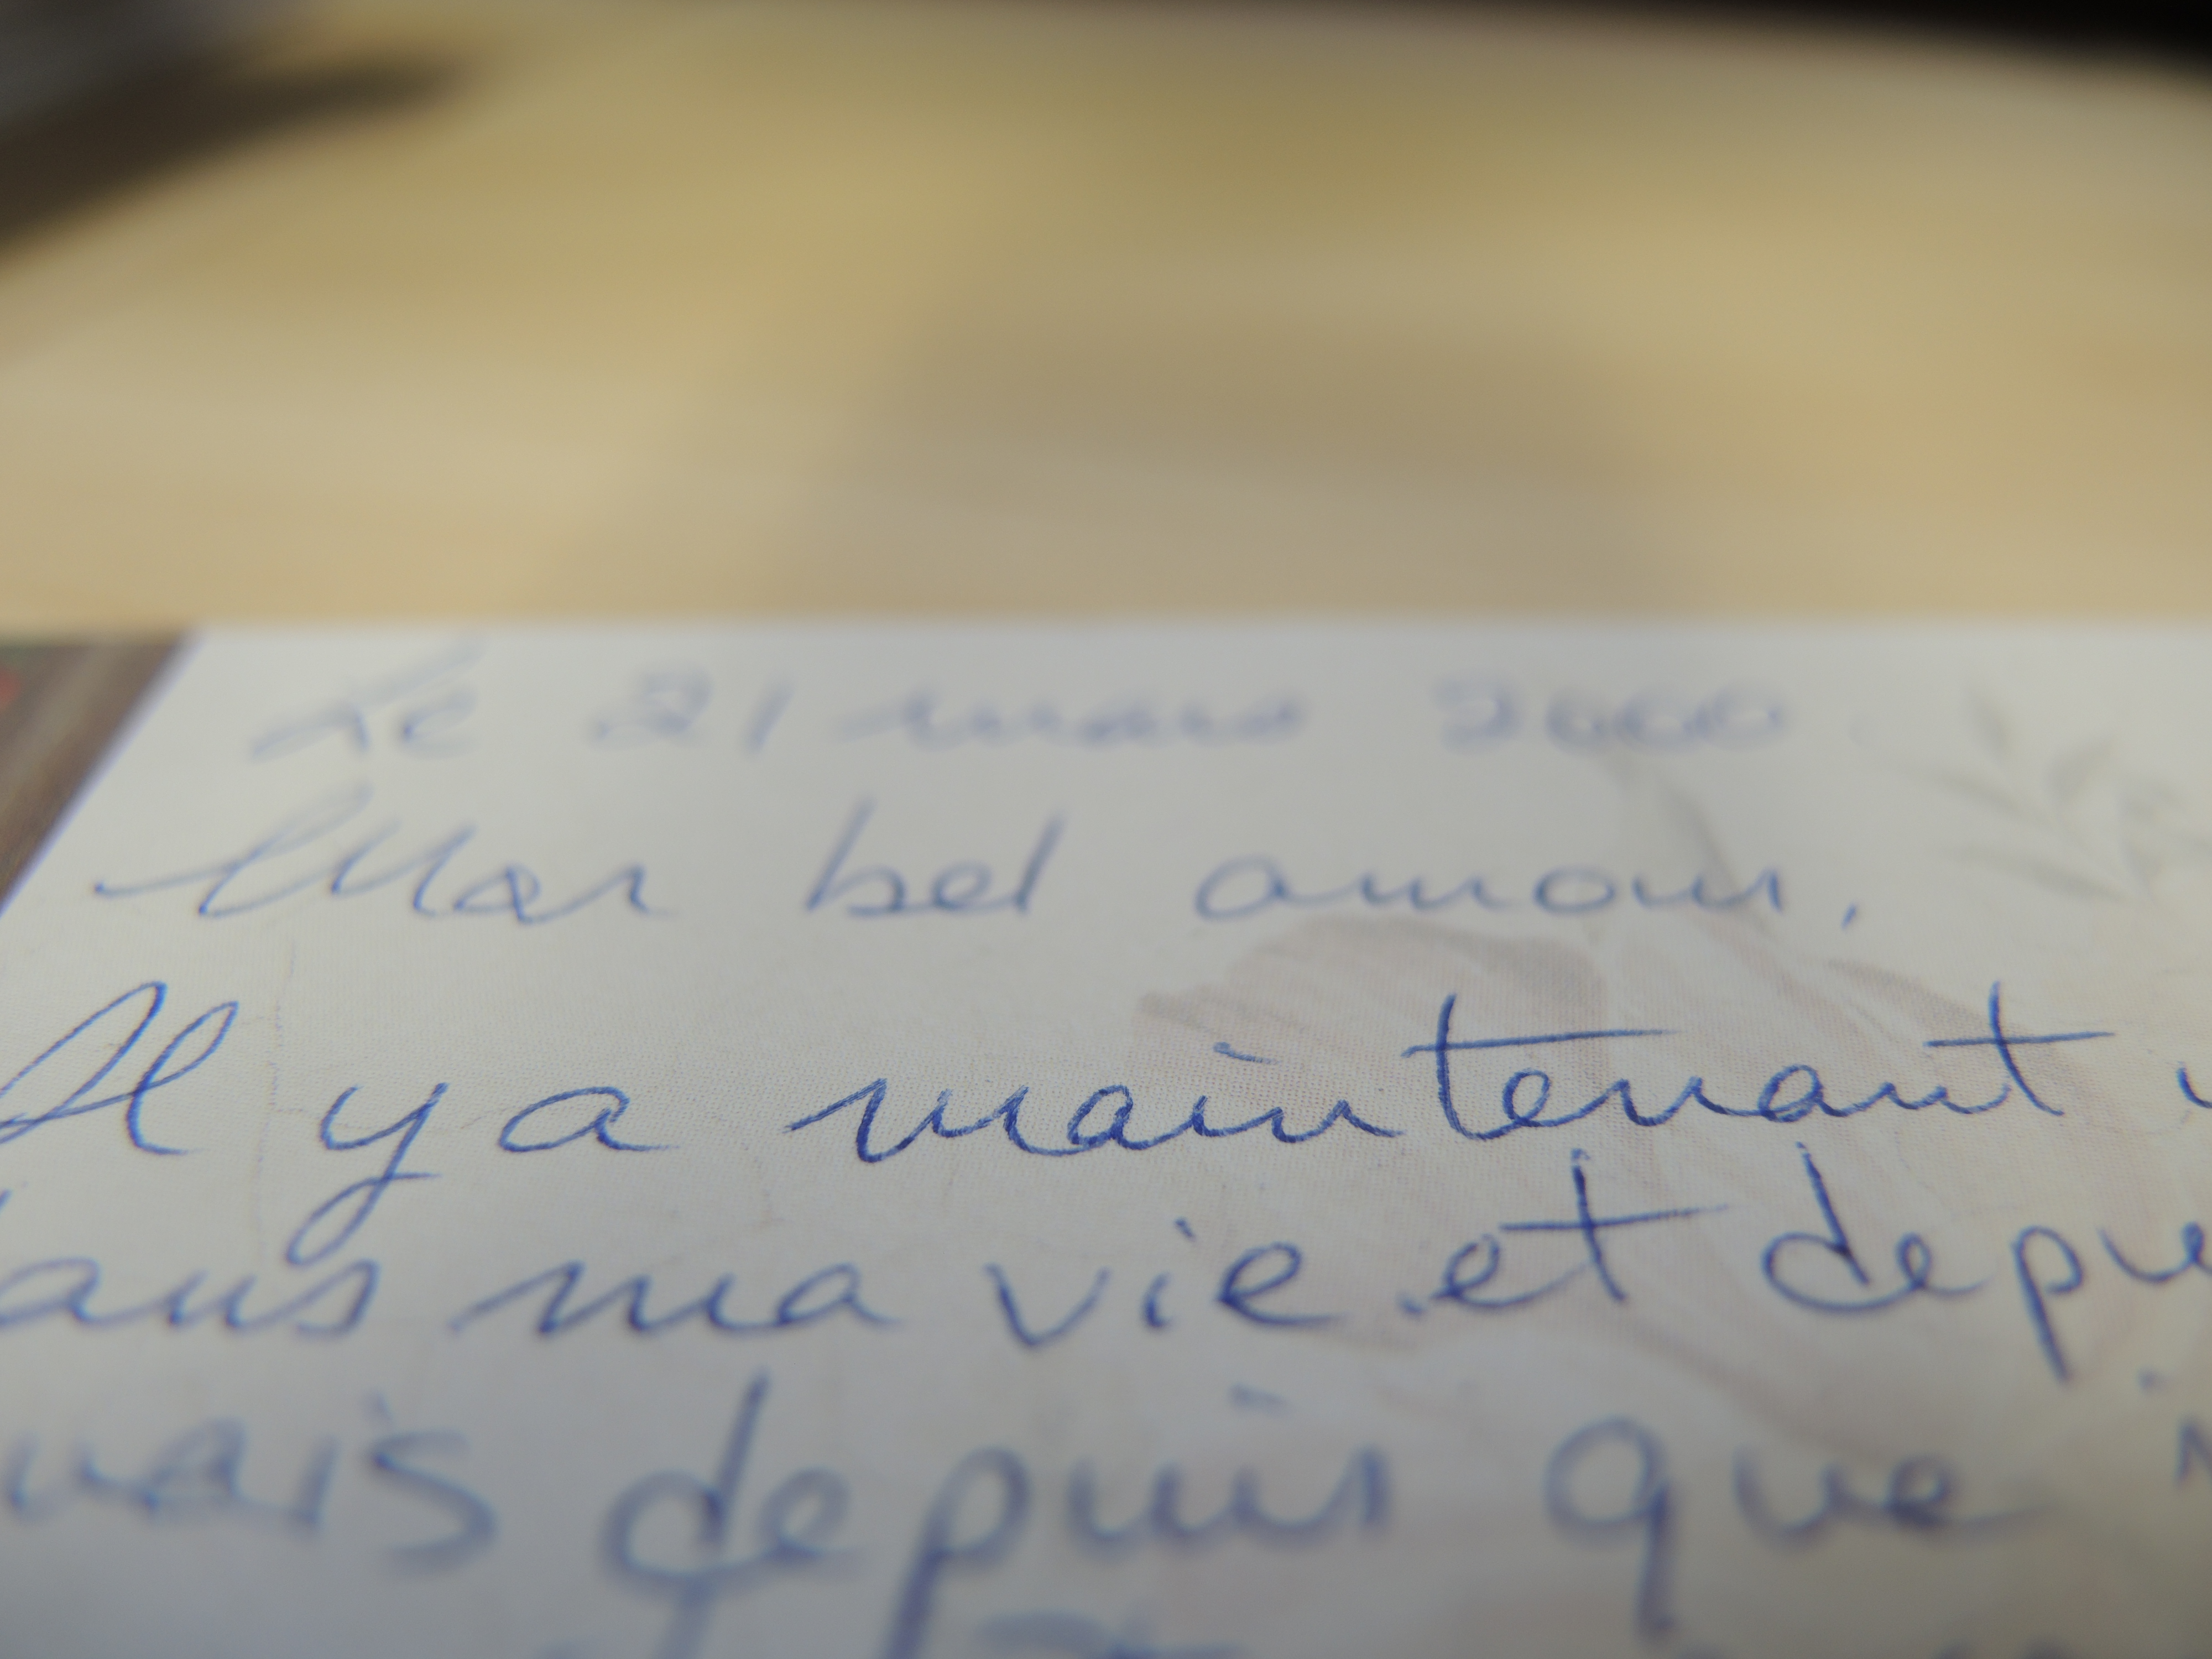 Le 21 mars 2000
Mon bel amour,
Il y a maintenant
dans ma vie et depu
mais depuis que